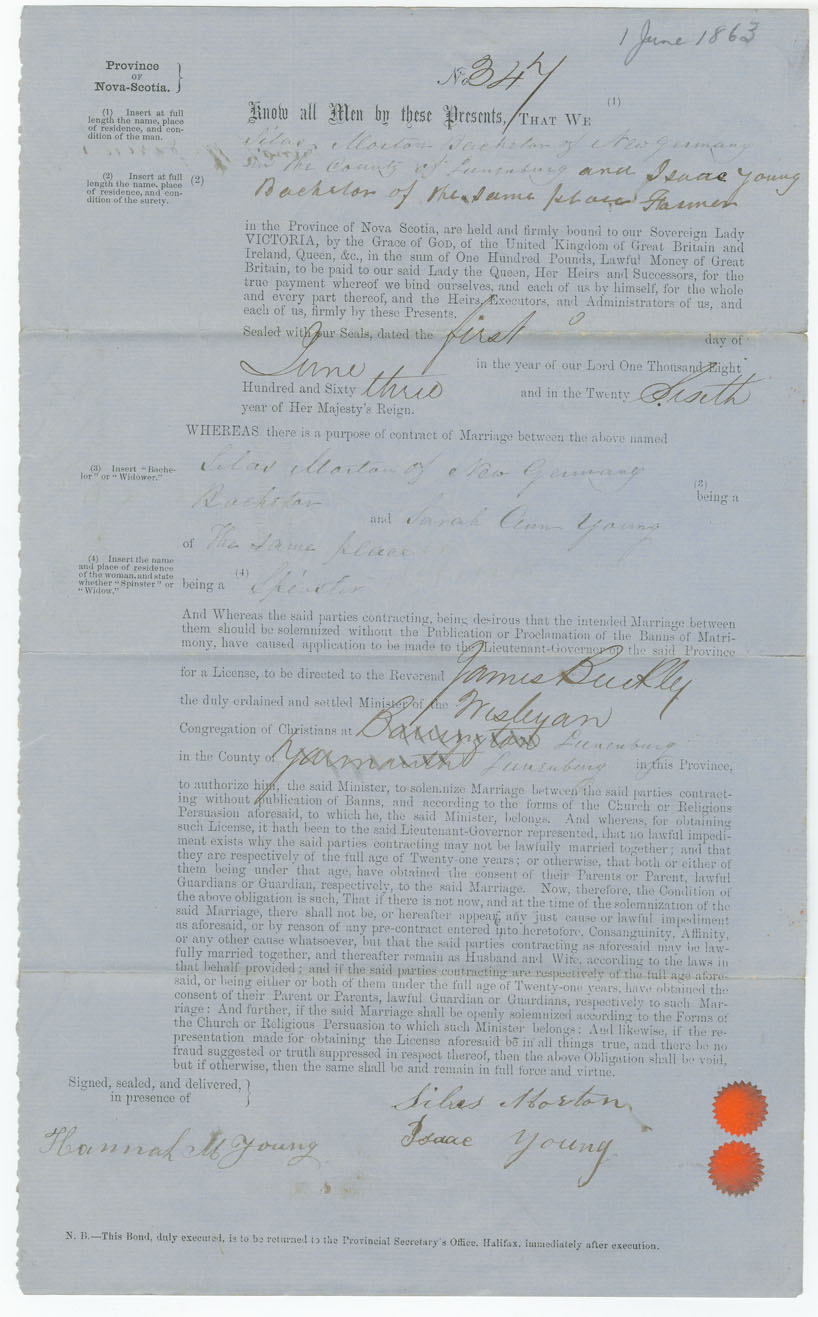 1 June 1863
Province
OF
Nova-Scotia.
No 347
(1) Insert at full
length the name, place
of residence, and con-
dition of the man.
Know all Men by these Presents, THAT WE (1)
Silas Morton Bachelor of New Germany
in the County of Lunenburg and Isaac Young
(2) Insert at full
length the name, place
of residence, and con-
dition of the surety.
(2) Bachelor of the same place Farmer
in the Province of Nova Scotia, are held and firmly bound to our Sovereign Lady
VICTORIA, by the Grace of GOD, of the United Kingdom of Great Britain and
Ireland, Queen, &c., in the sum of One Hundred Pounds, Lawful Money of Great
Britain, to be paid to our said Lady the Queen, Her Heirs and Successors, for the
true payment whereof we bind ourselves, and each of us by himself, for the whole
and every part thereof, and the Heirs, Executors, and Administrators of us, and
each of us, firmly by these Presents.
Sealed with our Seals, dated the first day of
June in the year of our Lord One Thousand Eight
Hundred and Sixty three and in the Twenty Sixth
year of Her Majesty's Reign.
WHEREAS there is a purpose of contract of Marriage between the above named
Silas Morton of New Germany
(3) Insert "Bache-
lor" or "Widower."
(3)
Bachelor being a
and Sarah Ann Young
of The same place
(4) Insert the name
and place of residence
of the woman, and state
whether "Spinster" or
"Widow."
being a (4) Spinster
And Whereas the said parties contracting, being desirous that the intended Marriage between
them should be solemnized without the Publication or Proclamation of the Banns of Matri-
mony, have caused application to be made to the Lieutenant-Governor of the said Province
for a License, to be directed to the Reverend James Buckley
the duly ordained and settled Minister of the Wesleyan
Congregation of Christians at Barrington Lunenburg
in the County of Yarmouth Lunenburg in this Province,
to authorize him, the said Minister, to solemnize Marriage between the said parties contract-
ing without Publication of Banns, and according to the forms of the Church or Religious
Persuasion aforesaid, to which he, the said Minister, belongs. And whereas, for obtaining
such License, it hath been to the said Lieutenant-Governor represented, that no lawful impedi-
ment exists why the said parties contracting may not be lawfully married together; and that
they are respectively of the full age of Twenty-one years; or otherwise, that both or either of
them being under that age, have obtained the consent of their Parents or Parent, lawful
Guardians or Guardian, respectively, to the said Marriage. Now, therefore, the Condition of
the above obligation is such, That if there is not now, and at the time of the solemnization of the
said Marriage, there shall not be, or hereafter appear, any just cause or lawful impediment
as aforesaid, or by reason of any pre-contract entered into heretofore, Consanguinity, Affinity,
or any other cause whatsoever, but that the said parties contracting as aforesaid may be law-
fully married together, and thereafter remain as Husband and Wife, according to the laws in
that behalf provided; and if the said parties contracting are respectively of the full age afore-
said, or being either or both of them under the full age of Twenty-one years, have obtained the
consent of their Parent or Parents, lawful Guardian or Guardians, respectively to such Mar-
riage: And further, if the said Marriage shall be openly solemnized according to the Forms of
the Church or Religious Persuasion to which such Minister belongs: And likewise, if the re-
presentation made for obtaining the License aforesaid be in all things true, and there be no
fraud suggested or truth suppressed in respect thereof, then the above Obligation shall be void,
but if otherwise, then the same shall be and remain in full force and virtue.
Signed, sealed, and delivered,
in presence of
Silas Morton
Hannah M Young
Isaac Young
N. B.—This Bond, duly executed, is to be returned to the Provincial Secretary's Office, Halifax, immediately after execution.